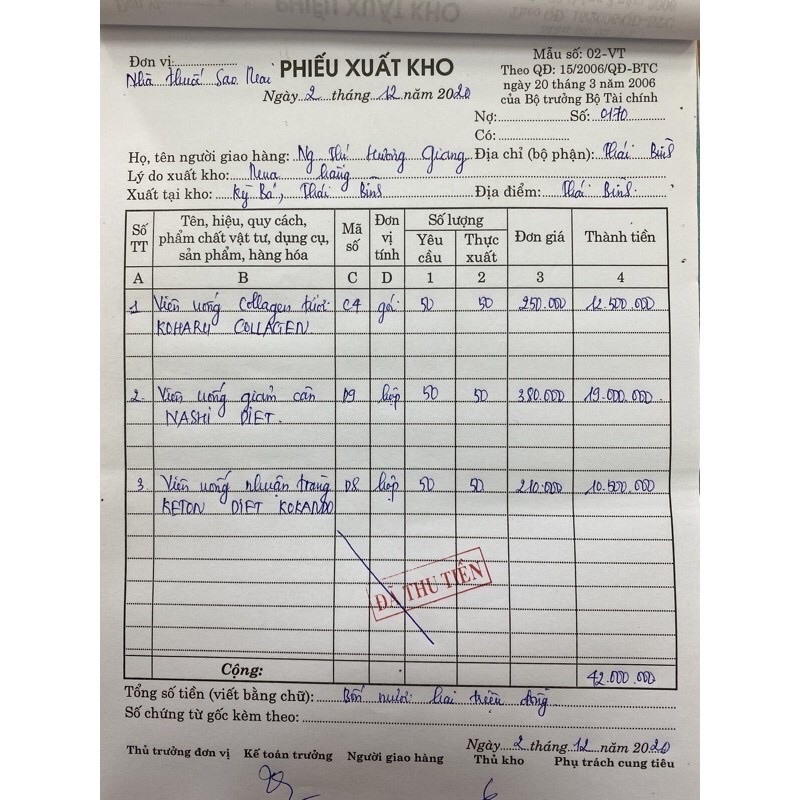 PHIẾU XUẤT KHO
Đơn vị:
Nhà thuốc Sao Mai
PHIẾU XUẤT KHO
Ngày 2 tháng 12 năm 2020
Mẫu số: 02-VT
Theo QĐ: 15/2006/QĐ-BTC
ngày 20 tháng 3 năm 2006
của Bộ trưởng Bộ Tài chính
Nợ: Số: 0170
Có:
Họ, tên người giao hàng: Ng Thị Hương Giang Địa chỉ (bộ phận): Thái Bình
Lý do xuất kho: Mua hàng
Xuất tại kho: Kỳ Bá, Thái Bình Địa điểm: Thái Bình
Số TT Tên, hiệu, quy cách, phẩm chất vật tư, dụng cụ, sản phẩm, hàng hóa Mã số Đơn vị tính Số lượng Yêu cầu Thực xuất Đơn giá Thành tiền
A B C D 1 2 3 4
1 Viên uống Collagen tươi C4 gói 50 50 250.000 12.500.000
KOHARU COLLAGEN
2. Viên uống giảm cân D9 hộp 50 50 380.000 19.000.000
NASHI DIET.
3. Viên uống nhuận tràng D8 hộp 50 50 210.000 10.500.000
KETON DIET KOKANDO
ĐÃ THU TIỀN
Cộng: 42.000.000
Tổng số tiền (viết bằng chữ): Bốn mươi hai triệu đồng
Số chứng từ gốc kèm theo:
Ngày 2 tháng 12 năm 2020
Thủ trưởng đơn vị Kế toán trưởng Người giao hàng Thủ kho Phụ trách cung tiêu